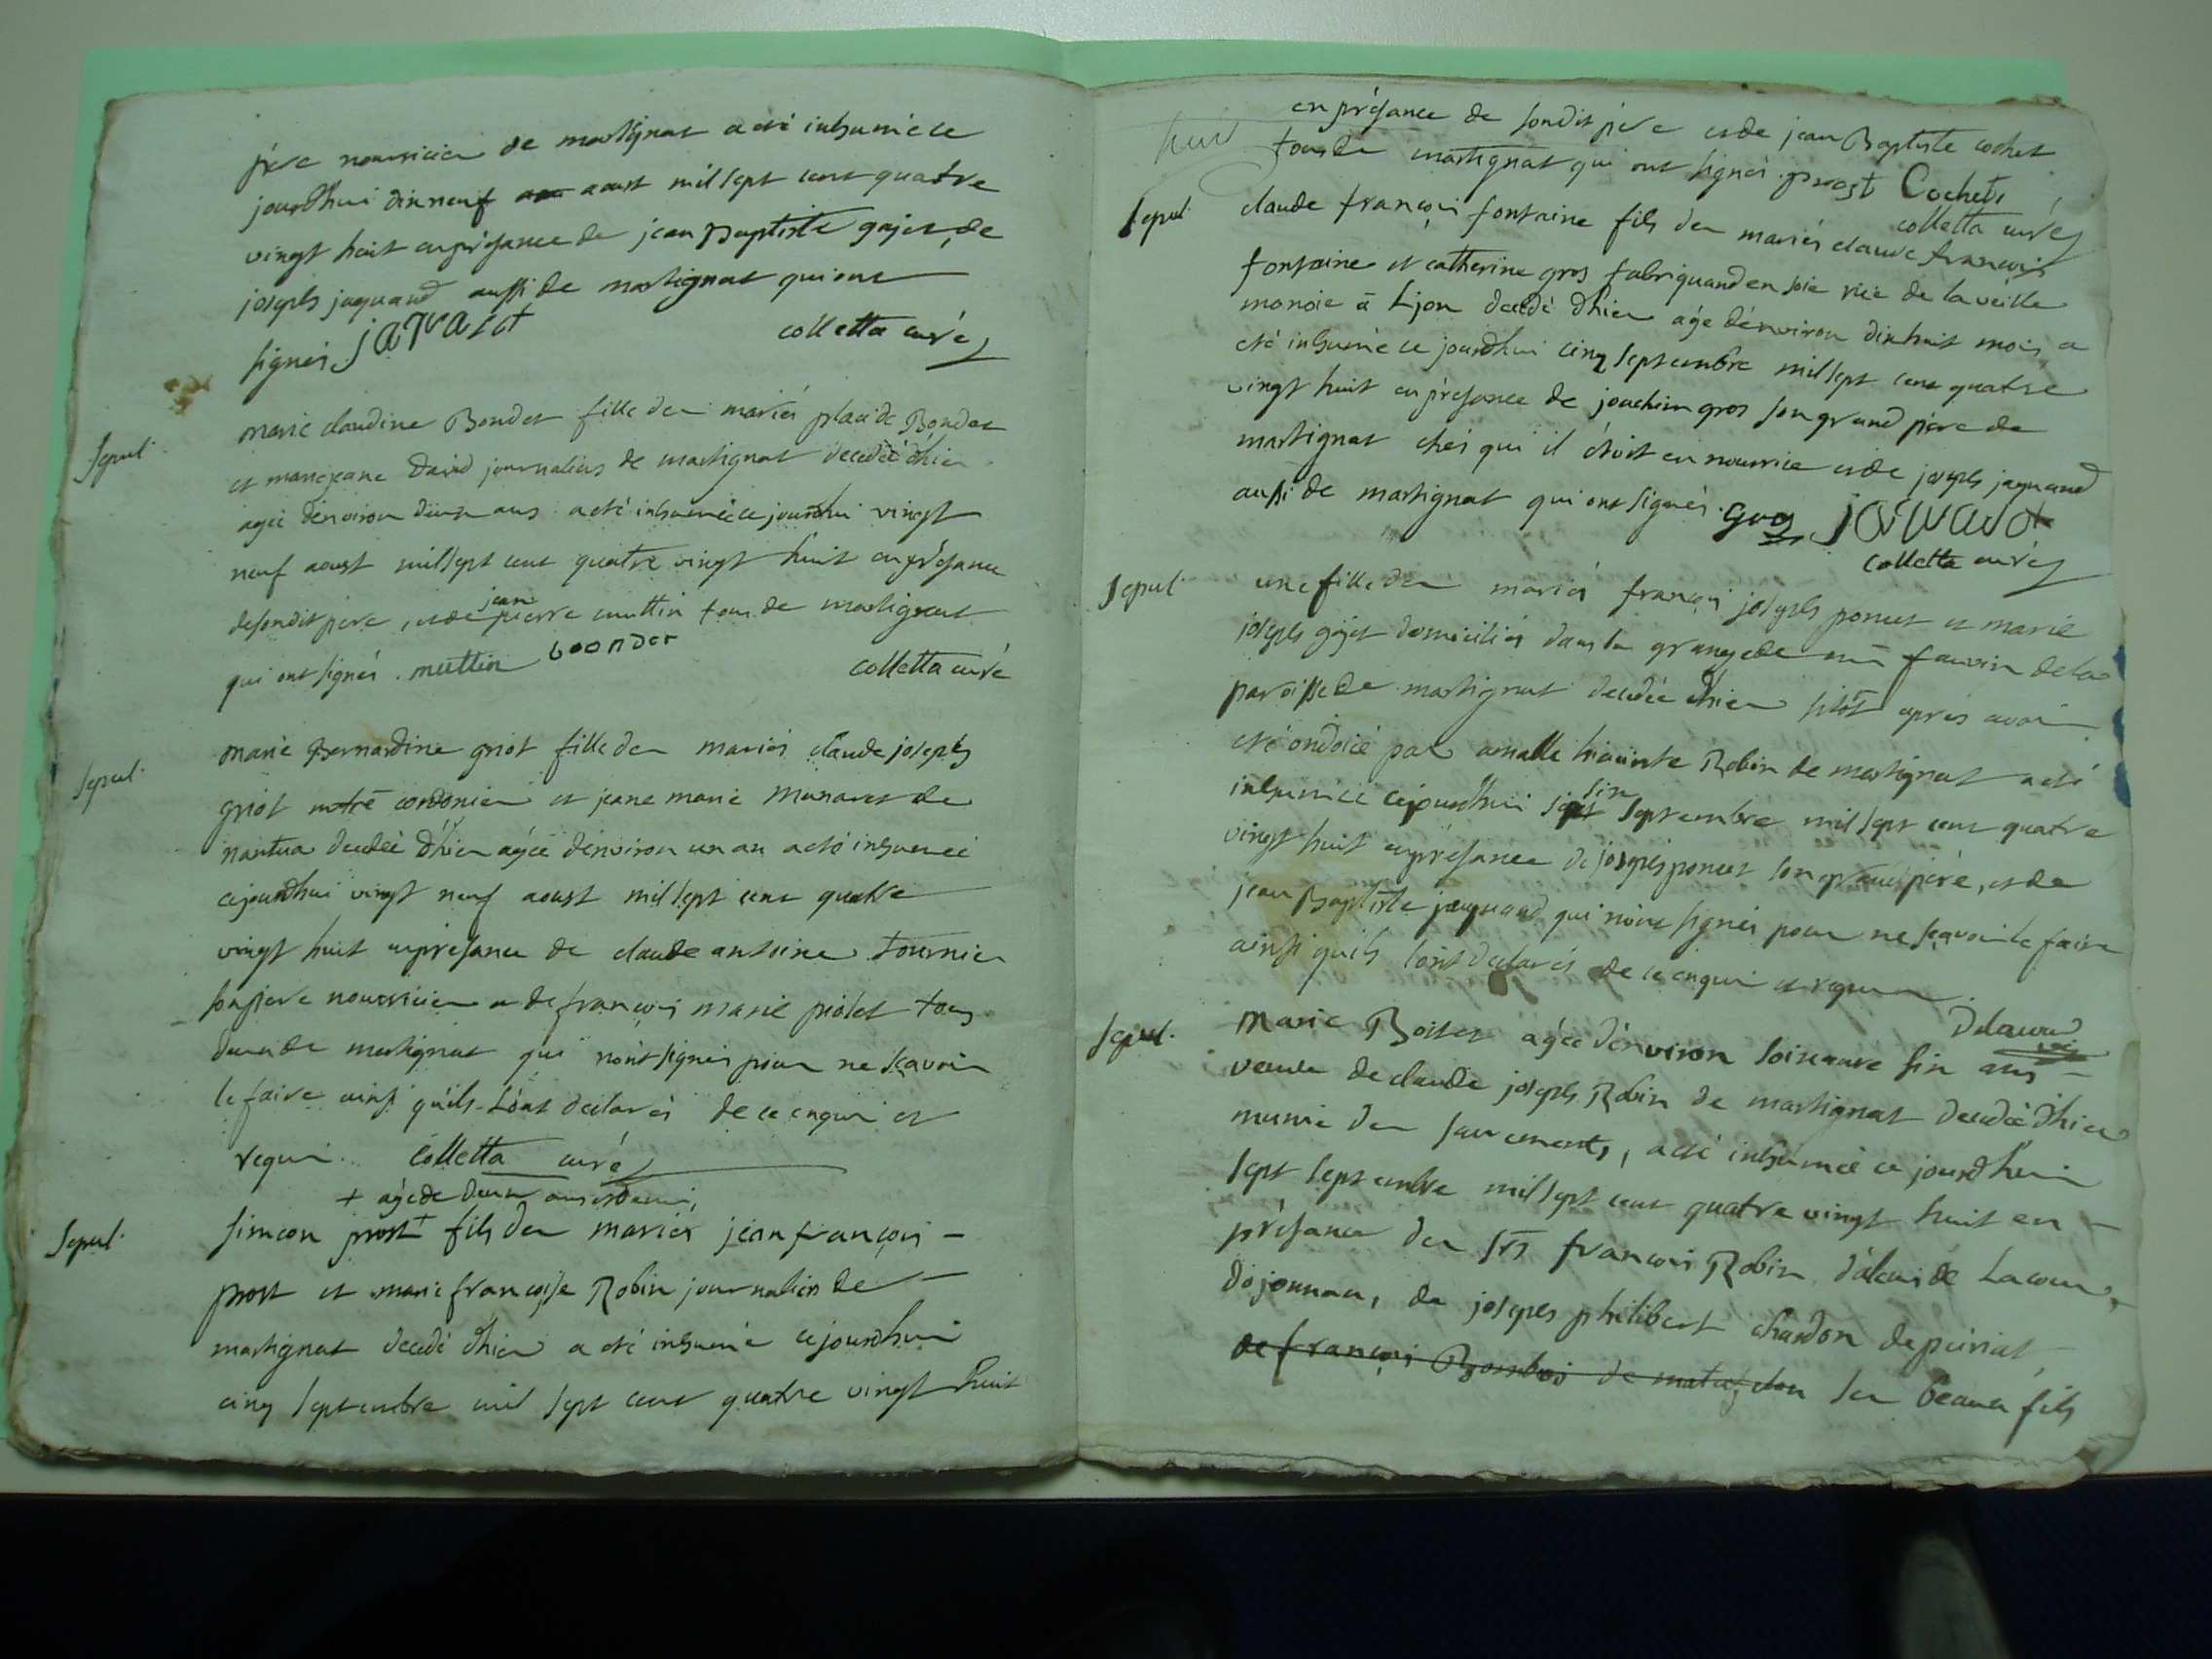 père nourricier de martignat a été inhumé ce
jourdhui dixneuf aoust mil sept cent quatre
vingt huit en présance de jean Baptiste gojet, de
joseph jaquand aussi de martignat qui ont
signés. colletta curé
Sepul. marie claudine Bondet fille des mariés placide Bondet
et marie jeane David journaliers de martignat decedée d'hier
agée denviron deux ans a été inhumée ce jourdhui vingt
neuf aoust mil sept cent quatre vingt huit en présance
de sondit père, et de jean pierre muttin tous de martignat
qui ont signés. muttin bondet colletta curé
Sepul. marie Bernardine griot fille des mariés claude joseph
griot cordonier et jeane marie munaret de
nantua decedée d'hier agée denviron un an a été inhumée
cejourdhui vingt neuf aoust mil sept cent quatre
vingt huit en présance de claude antoine tournier
son père nourricier et de françois marie piolet tous
deux de martignat qui n'ont signés pour ne sçavoir
le faire ainsi qu'ils l'ont declarés de ce enquis et
requis. Colletta curé
+ agé de deux ans et demi,
Sepul. simeon prost + fils des mariés jean françois
prost et marie françoise Robin journaliers de
martignat decedé d'hier a été inhumé cejourdhui
cinq septembre mil sept cent quatre vingt huit
en présance de sondit père et de jean Baptiste cochet
tous de martignat qui ont signés. prost Cochet
colletta curé
Sepul. claude françois fontaine fils des mariés claude françois
fontaine et catherine gros fabriquand en soie rüe de la veille
monoie à Lyon decedé d'hier agé d'environ dixhuit mois a
eté inhumé ce jourdhui cinq septembre mil sept cent quatre
vingt huit en présance de joachim gros son grand père de
martignat chés qui il étoit en nourrice et de joseph jaquand
aussi de martignat qui ont signés. gros
colletta curé
Sepul. une fille des mariés françois joseph poncet et marie
joseph gojet domiciliés dans la grange de fauvin de la
paroisse de martignat decedée d'hier sitôt après avoir
eté ondoiée par hiacinte Robin de martignat a été
inhumée cejourdhui six septembre mil sept cent quatre
vingt huit en présance de joseph poncet son grand père, et de
jean Baptiste jaquand qui n'ont signés pour ne sçavoir le faire
ainsi qu'ils l'ont declarés de ce enquis et requis
Sepul. marie agée d'environ soixante six ans
veuve de claude joseph Robin de martignat decedée d'hier
munie des sacrements, a été inhumée ce jourdhui
sept septembre mil sept cent quatre vingt huit en
présance des srs françois Robin
de joseph philibert chardon
de françois de ses beaux fils